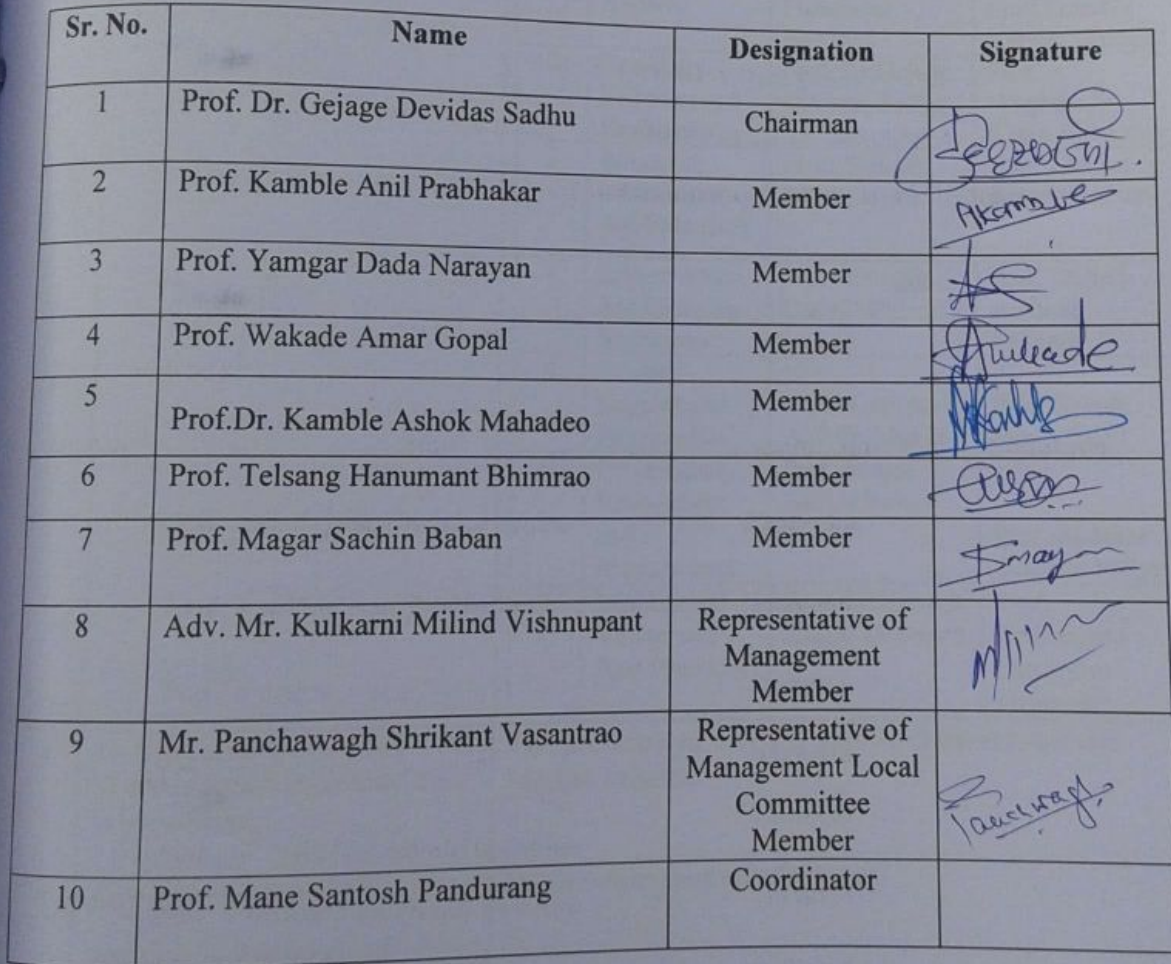 Sr. No. Name Designation Signature
1 Prof. Dr. Gejage Devidas Sadhu Chairman
2 Prof. Kamble Anil Prabhakar Member AKamble
3 Prof. Yamgar Dada Narayan Member
4 Prof. Wakade Amar Gopal Member
5 Prof.Dr. Kamble Ashok Mahadeo Member
6 Prof. Telsang Hanumant Bhimrao Member
7 Prof. Magar Sachin Baban Member
8 Adv. Mr. Kulkarni Milind Vishnupant Representative of
Management
Member
9 Mr. Panchawagh Shrikant Vasantrao Representative of
Management Local
Committee
Member
10 Prof. Mane Santosh Pandurang Coordinator